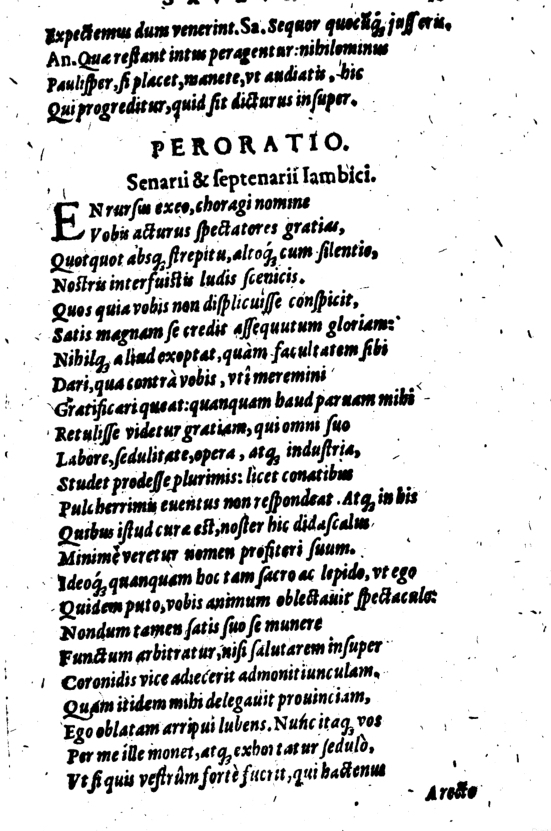 Expectemus dum venerint. Sa. Sequor quocūq́; jusseris.
An. Quæ restant intus peragentur: nihilominus
Paulisper, si placet, manete, vt audiatis, hic
Qui progreditur, quid sit dicturus insuper.
PERORATIO.
Senarii & septenarii Iambici.
EN rursus exeo, choragi nomine
Vobis acturus spectatores gratias,
Quotquot absq; strepitu, altoq́; cum silentio,
Nostris interfuistis ludis scenicis.
Quos quia vobis non displicuisse conspicit,
Satis magnam se credit assequutum gloriam:
Nihilq; aliud exoptat, quàm facultatem sibi
Dari, qua contrà vobis, vti meremini
Gratificari queat: quanquam haud paruam mihi
Retulisse videtur gratiam, qui omni suo
Labore, sedulitate, opera, atq; industria,
Studet prodesse plurimis: licet conatibus
Pulcherrimis euentus non respondeat. Atq; in his
Quibus istud curæ est, noster hic didascalus
Minimè veretur nomen profiteri suum.
Ideoq́; quanquam hoc tam sacro ac lepido, vt ego
Quidem puto, vobis animum oblectauit spectaculo:
Nondum tamen satis suo se munere
Functum arbitratur, nisi salutarem insuper
Coronidis vice adiecerit admonitiunculam.
Quam itidem mihi delegauit prouinciam,
Ego oblatam arripui lubens. Nunc itaq; vos
Per me ille monet, atq; exhortatur sedulò,
Vt si quis vestrûm fortè fuerit, qui hactenus
Arecto